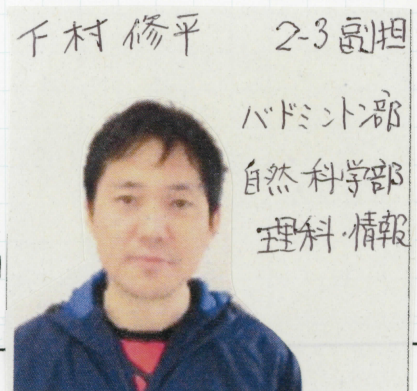 下村 修平 2-3 副担
バドミントン部
自然科学部
理科・情報